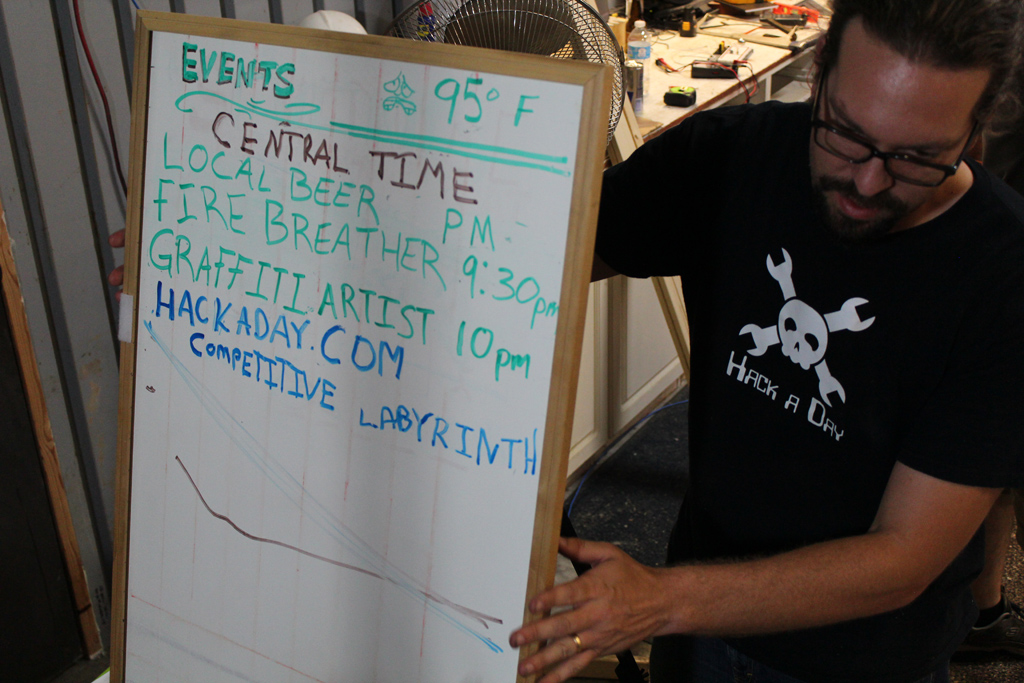 EVENTS
95° F
CENTRAL TIME
LOCAL BEER PM -
FIRE BREATHER 9:30pm
GRAFFITI ARTIST 10pm
HACKADAY.COM
COMPETITIVE LABYRINTH
HACK A DAY